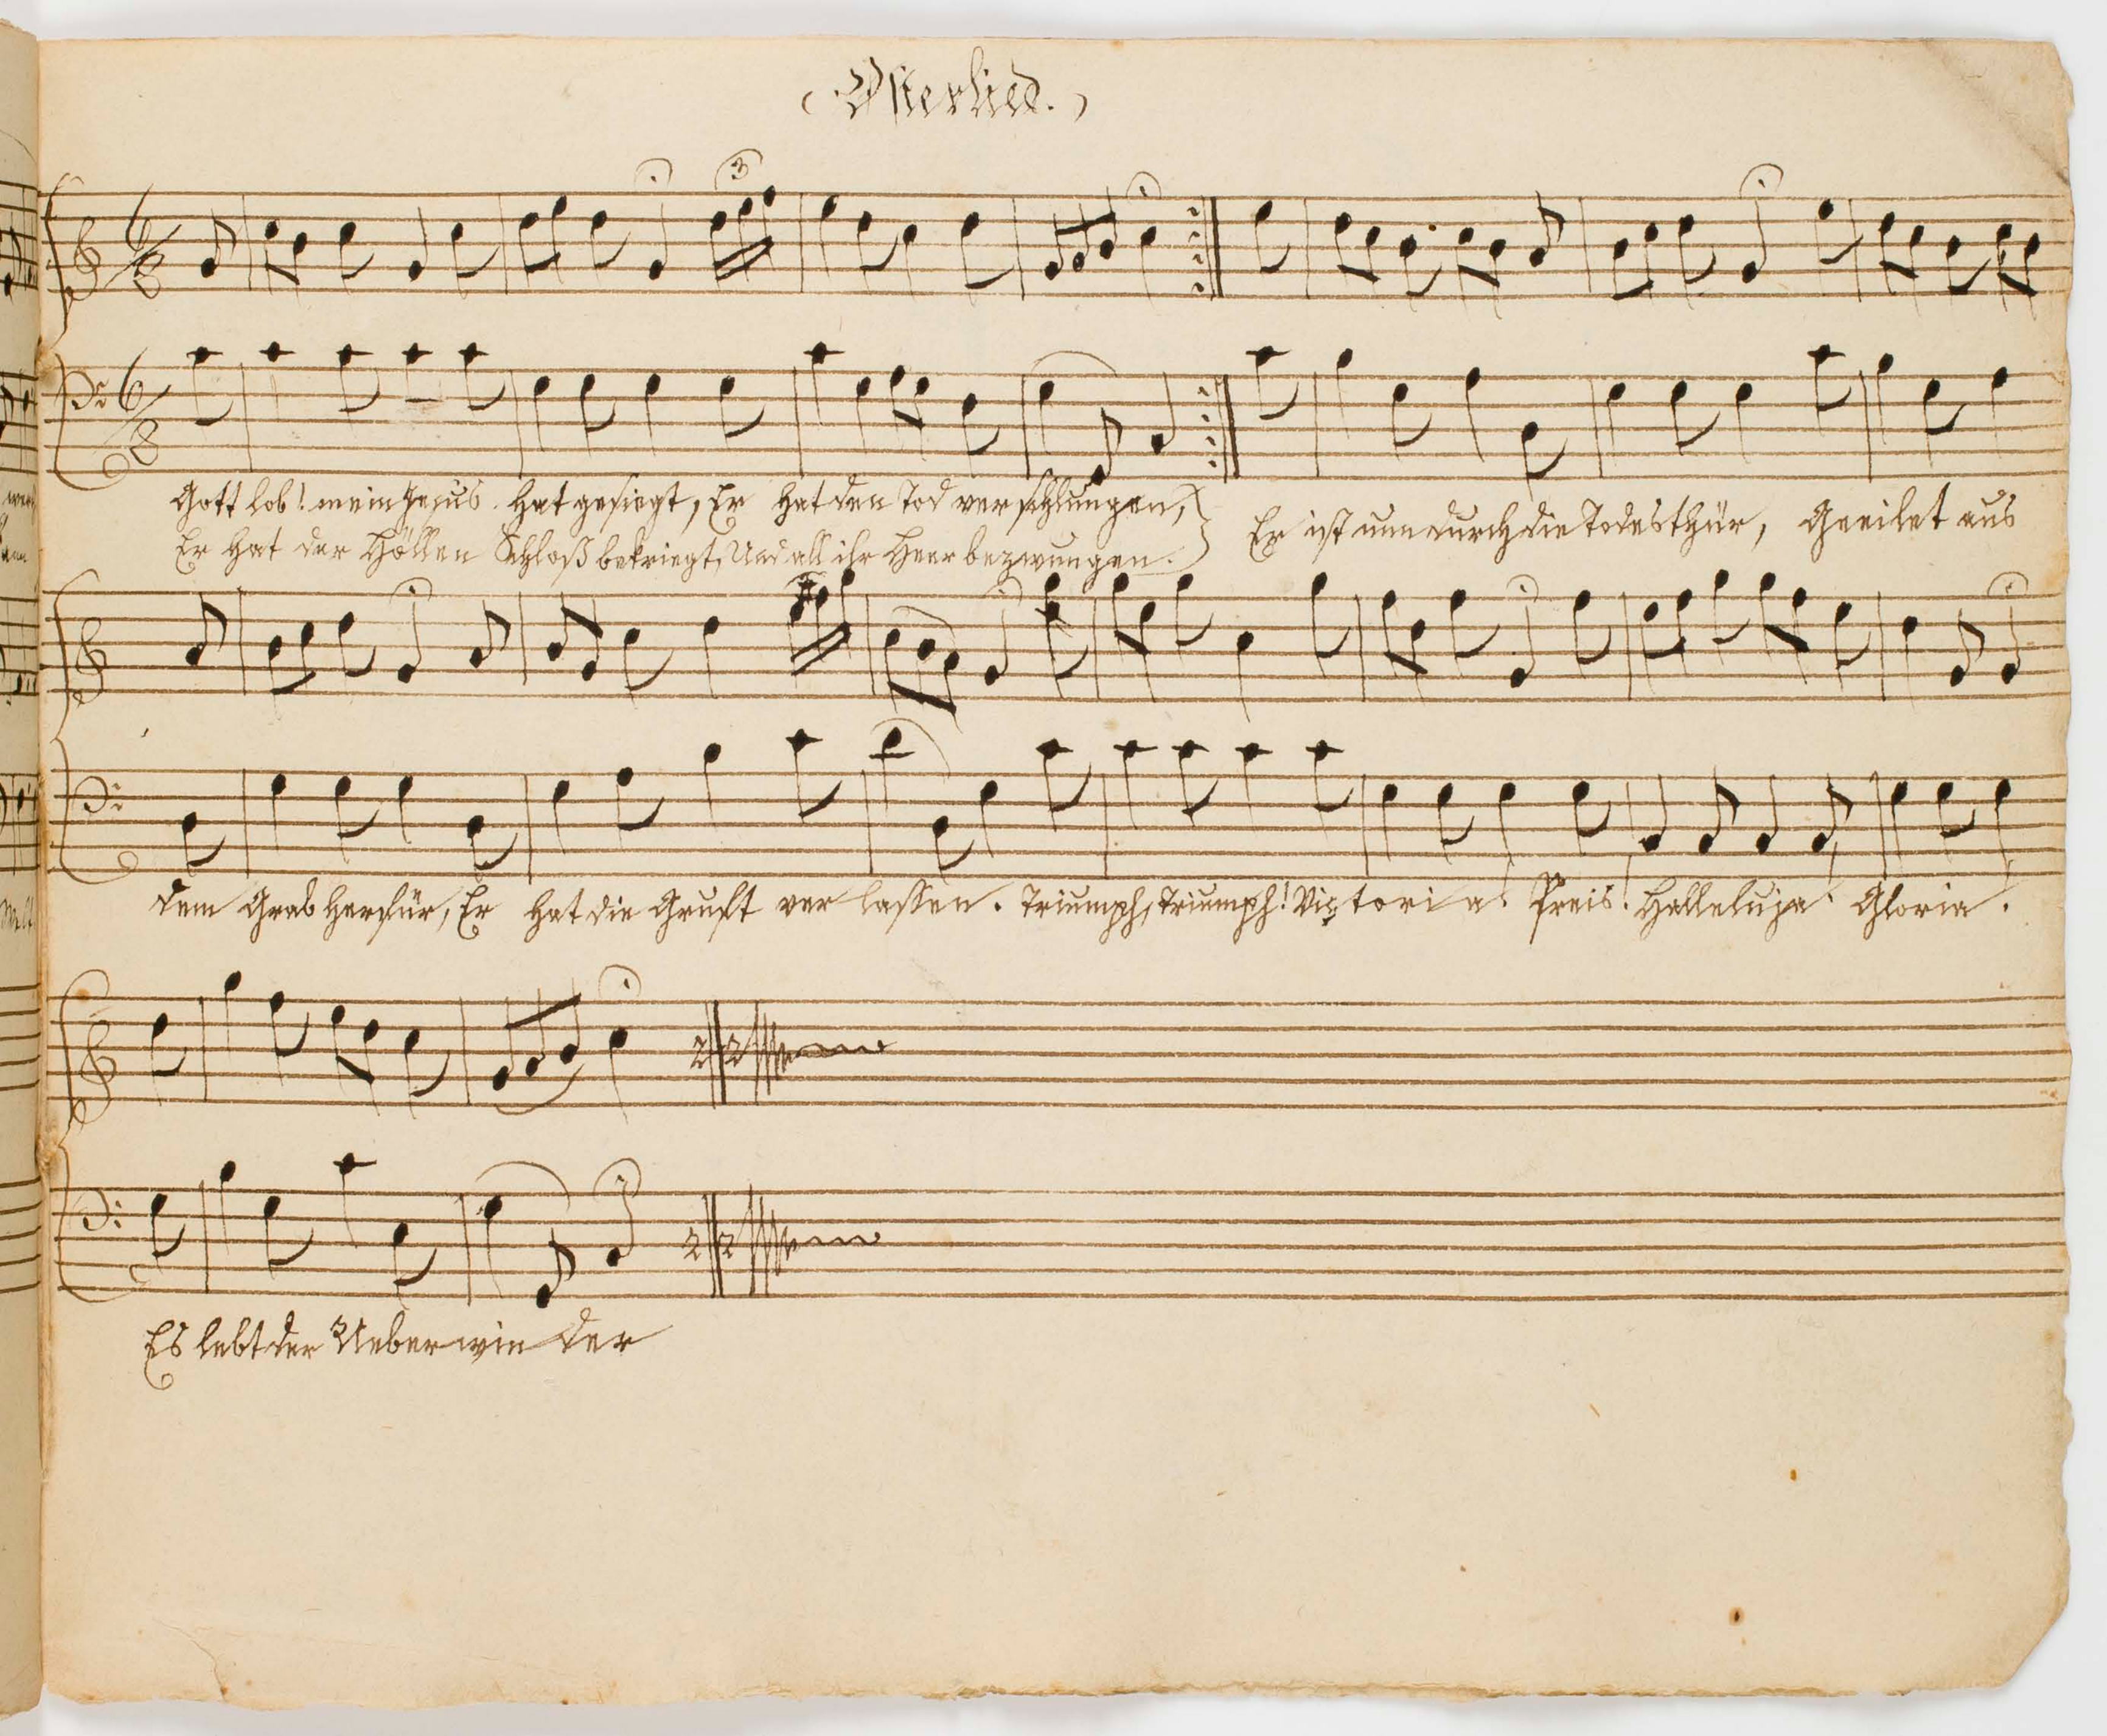 Osterlied.
Gott lob! mein Jesus hat gesiegt, Er hat den Tod verschlungen,
Er hat der Höllen Schloß bekriegt, Und all ihr Heer bezwungen.
Er ist nun durch die Todesthür, Geeilet aus
dem Grab herfür, Er hat die Gruft verlassen. Triumph, Triumph! Victoria. Preis! Halleluja. Gloria.
Es lebt der Ueberwinder